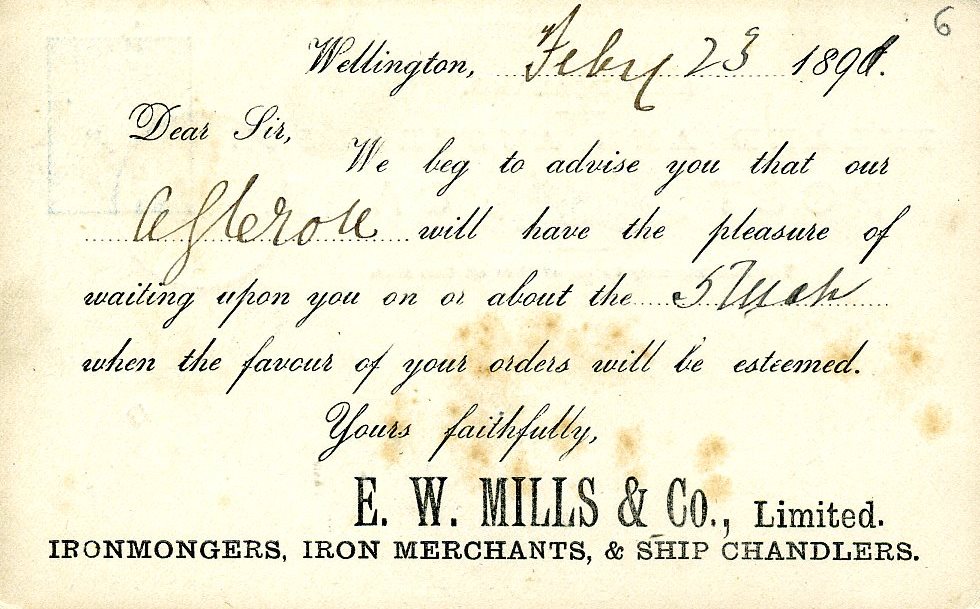 6
Wellington, Feby 23 189
Dear Sir,
We beg to advise you that our
will have the pleasure of
waiting upon you on or about the 5
when the favour of your orders will be esteemed.
Yours faithfully,
E. W. MILLS & Co., Limited.
IRONMONGERS, IRON MERCHANTS, & SHIP CHANDLERS.